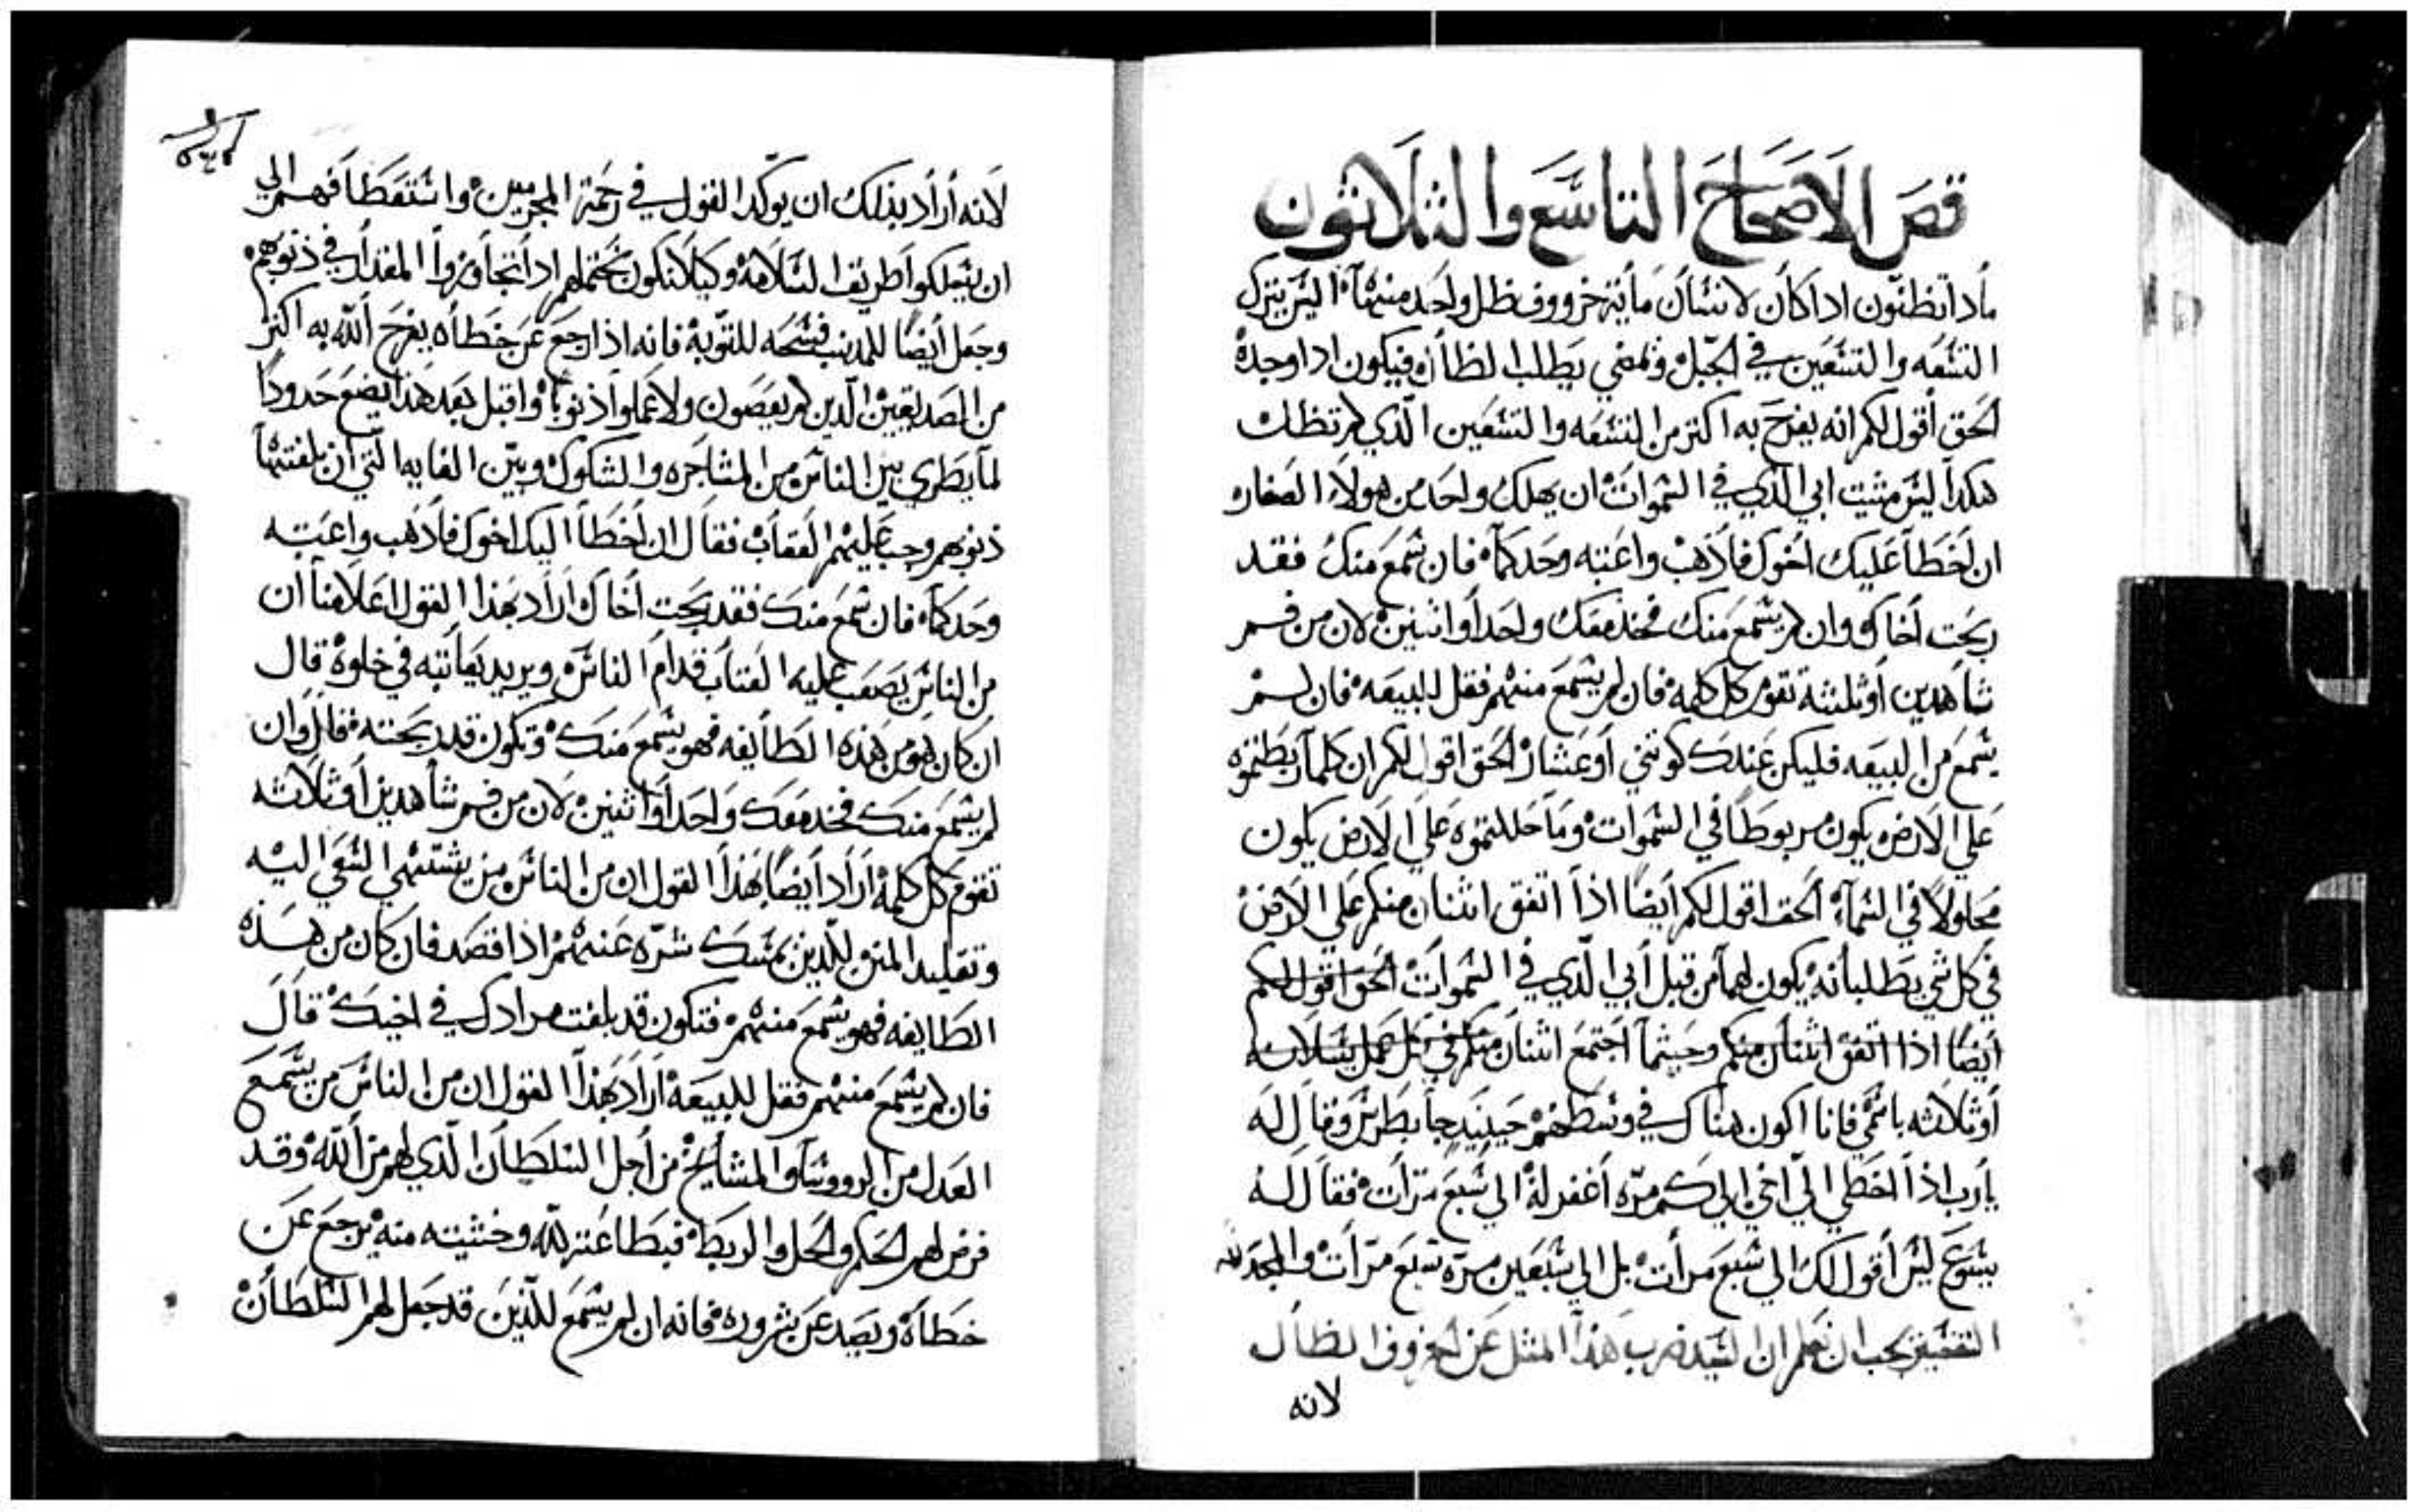 قص الاصحاح التاسع والثلاثون
مادا تظنون ادا كان لانسان ماية خروف فظل واحد منها اليس يترك
التسعه والتسعين في الجبل ويمضي يطلب الظال فيكون ادا وجده
الحق أقول لكم انه يفرح به اكتر من التسعه والتسعين الذي لم تظل
هكدا ليس مشيت ابي الذي في السموات ان يهلك واحد من هولاء الصغار
ان اخطا عليك اخوك فاذهب واعتبه وحدكما فان سمع منك فقد
ربحت أخاك وان لم يسمع منك فخد معك واحدا او اثنين لان من فم
شاهدين او ثلثة تقوم كل كلمه فان لم يسمع منهم فقل للبيعه فان لم
يسمع من البيعه فليكن عندك كوثني أو عشار الحق اقول لكم ان كلما ربطتموه
علي الارض يكون مربوطا في السموات وما حللتموه علي الارض يكون
محلولا في السماء الحق اقول لكم أيضا اذا اتفق اثنان منكم علي الارض
في كل شي يطلبانه يكون لهما من قبل أبي الذي في السموات الحق اقول لكم
أيضا اذا اتفق اثنان منكم وحيثما اجتمع اثنان منكم في كل عمل يسلانه
أو ثلاثه باسمي فانا اكون هناك في وسطهم حينيد جا بطرس وقال له
يارب اذا اخطي الي اخي الي كم مره أغفر له الي سبع مرات فقال له
يسوع ليس أقول لك الي سبع مرات بل الي سبعين مرة سبع مرات والمجد لله
التفسير يجب ان نعلم ان السيد ضرب هذا المثل عن الخروف الظال
لانه
لانه أراد بذلك ان يوكد القول في رحمة المجرمين واستقظافهم الي
ان يسلكوا طريق السلامة وكيلا تكون تحتملهم اذا تجاوزوا المقدار في ذنوبهم
وجعل أيضا للمدنب فسحه للتوبة فانه اذا رجع عن خطاه يفرح الله به اكتر
من الصديقين الذين لم يعصون ولا عملوا ذنوبا واقبل بعد هذا يضع حدودا
لما يطري بين الناس من المشاجره والشكوك وبين الغايه التي ان بلغتها
ذنوبهم وجب عليهم العقاب فقال ان اخطا اليك اخوك فاذهب واعتبه
وحدكما فان سمع منك فقد ربحت أخاك اراد بهذا القول اعلامنا ان
من الناس يصعب عليه العتاب قدام الناس ويريد يعاتبه في خلوة قال
ان كان هو من هذه الطايفه فهو يسمع منك وتكون قد ربحته فقال وان
لم يسمع منك فخد معك واحدا او اثنين لان من فم شاهدين أو ثلاثه
تقوم كل كلمة اراد أيضا بهذا القول ان من الناس من يشتهي السعي اليه
وتقليد المنن للذين يمسك شره عنهم اذا قصد فان كان من هذه
الطايفه فهو يسمع منهم فتكون قد بلغت مرادك في اخيك قال
فان لم يسمع منهم فقل للبيعة اراد بهذا القول ان من الناس من يسمع
العدل من الرووسا والمشايخ من أجل السلطان الذي لهم من الله وقد
فرض لهم الحكم والحل والربط فبطاعته لله وخشيته منه يرجع عن
خطاه ويصد عن شروره فانه ان لم يسمع للذين قد جعل لهم السلطان